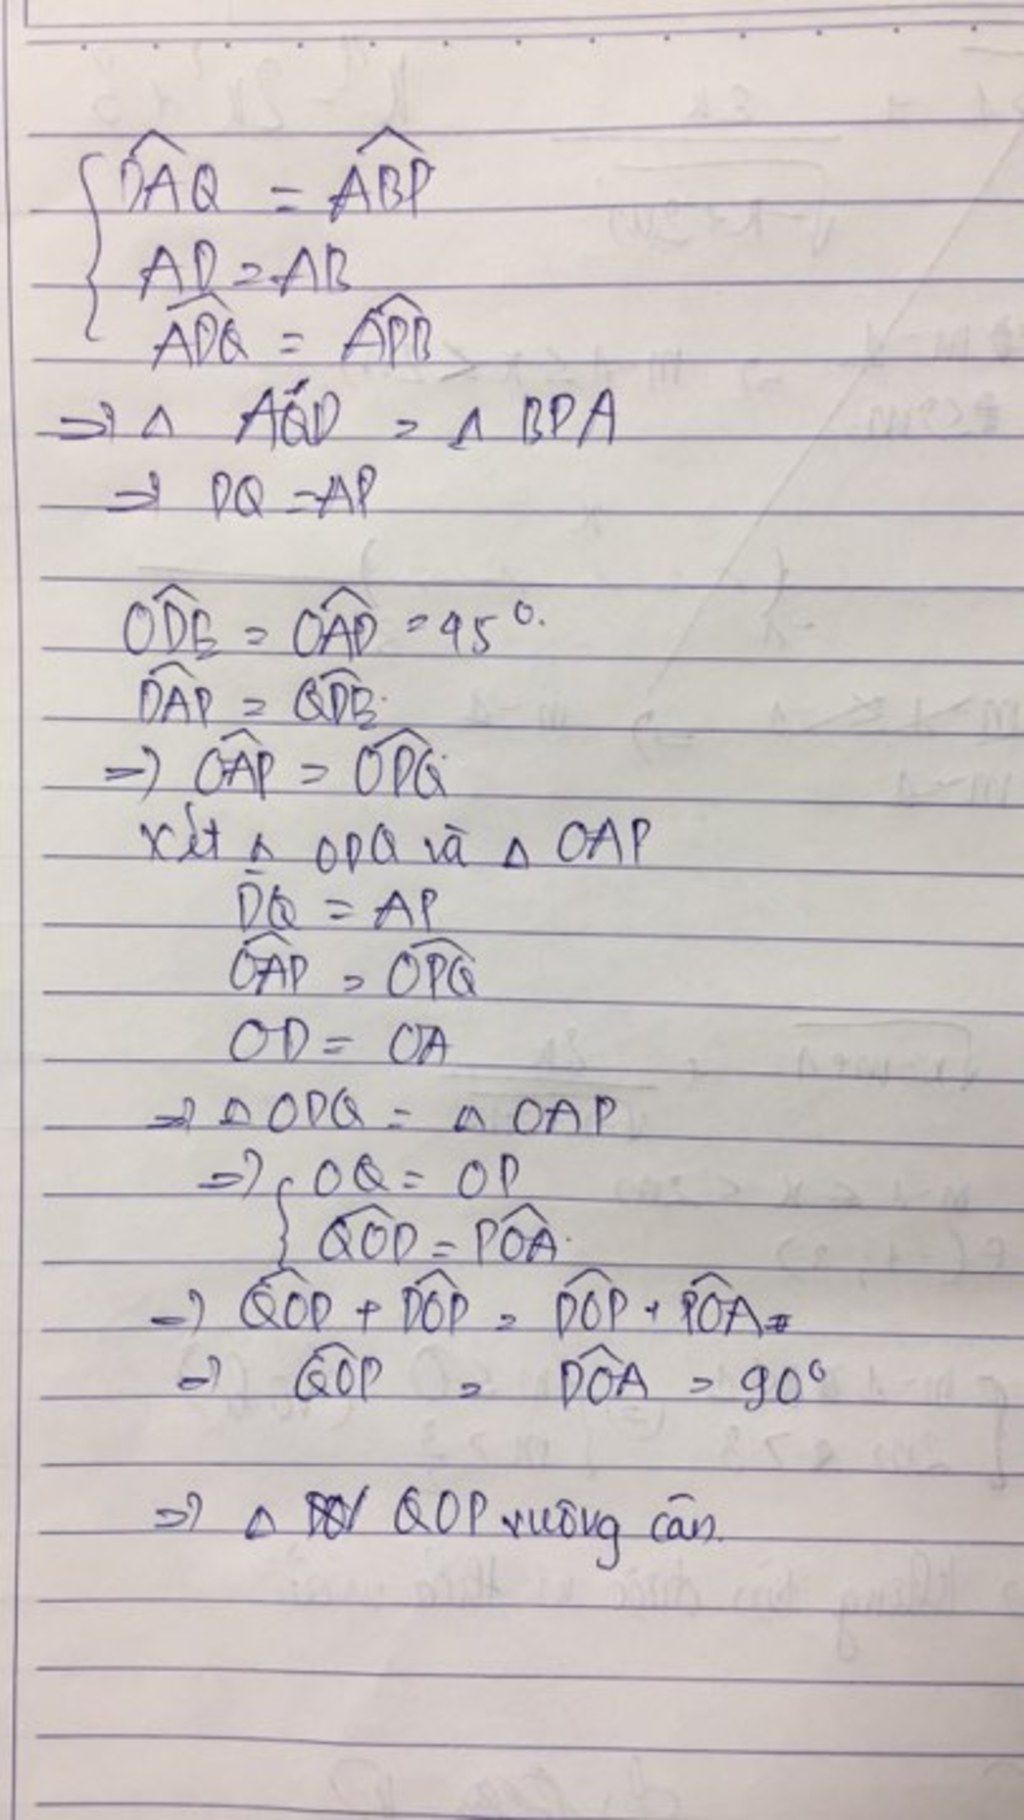 { \widehat{DAQ} = \widehat{ABP}
AD = AB
\widehat{ADQ} = \widehat{APB}
=> Δ AQD = Δ BPA
=> DQ = AP
\widehat{ODE} = \widehat{OAD} = 45°.
\widehat{DAP} = \widehat{QDE}
=> \widehat{OAP} = \widehat{ODQ}
xét Δ ODQ và Δ OAP
DQ = AP
\widehat{OAP} = \widehat{OPQ}
OD = OA
=> Δ ODQ = Δ OAP
=> { OQ = OP
\widehat{QOD} = \widehat{POA}
=> \widehat{QOD} + \widehat{DOP} = \widehat{DOP} + \widehat{POA} =
=> \widehat{QOP} = \widehat{DOA} = 90°
=> Δ QOP vuông cân.